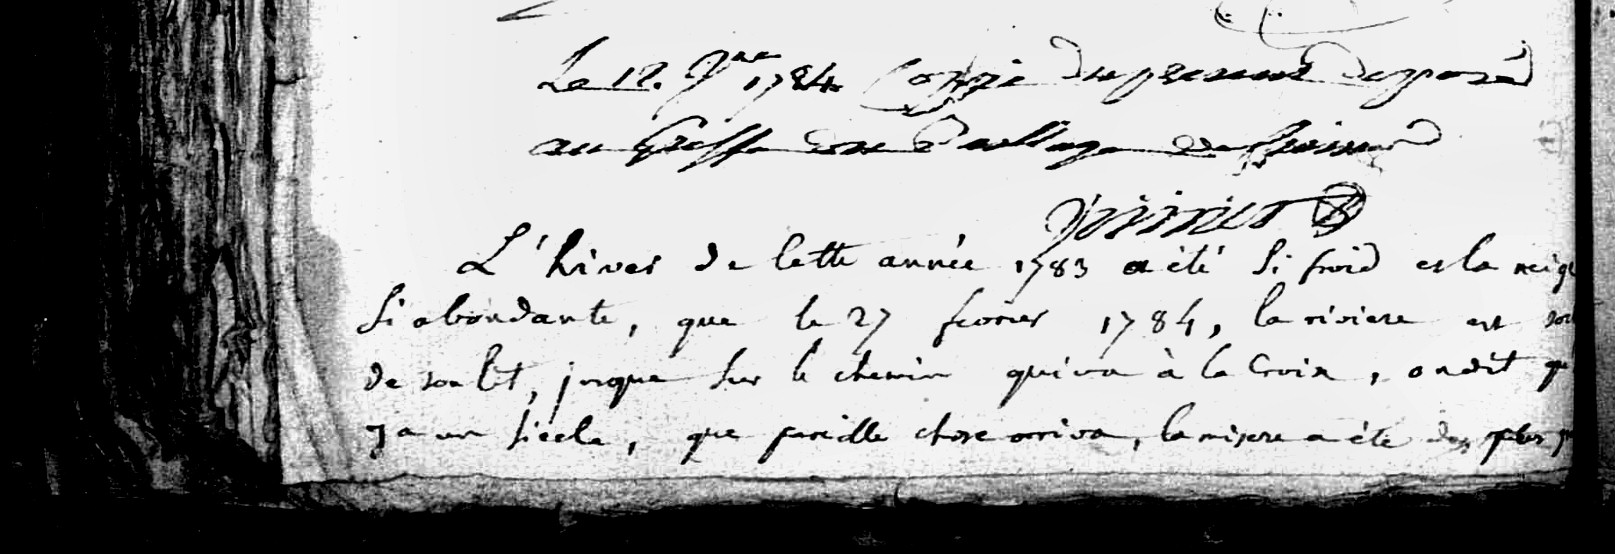 Le 12. Jer 1784 Coppie du present deposé
au Greffe du Baillage
L'hiver de cette année 1783 a été si froid et la neig
si abondante, que le 27 fevrier 1784, la riviere est sor
de son lit, jusque sur le chemin qui va à la Croix, on dit q
y a un siecle, que pareille chose arriva, la misere a été des plus